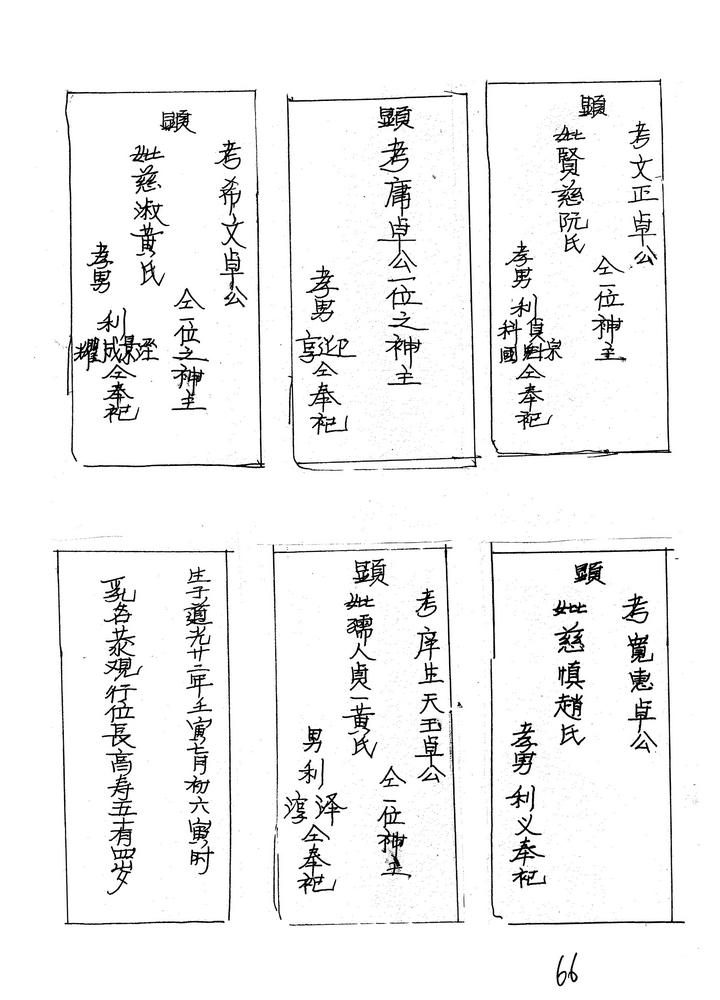 顯
考文正卓公
妣賢慈阮氏
仝一位神主
孝男利
貞
科
國
宗
仝奉祀
顯考庠卓公一位之神主
孝男
迎
享
仝奉祀
顯
考希文卓公
妣慈淑黃氏
仝一位之神主
孝男利
成
耀
仝奉祀
顯
考寬惠卓公
妣慈慎趙氏
孝男利义奉祀
顯
考庠生天玉卓公
妣孺人貞一黃氏
仝一位神主
男利
泽
淳
仝奉祀
生于道光廿二年壬寅七月初六寅时
乳名恭观行位長高寿五有四岁
66